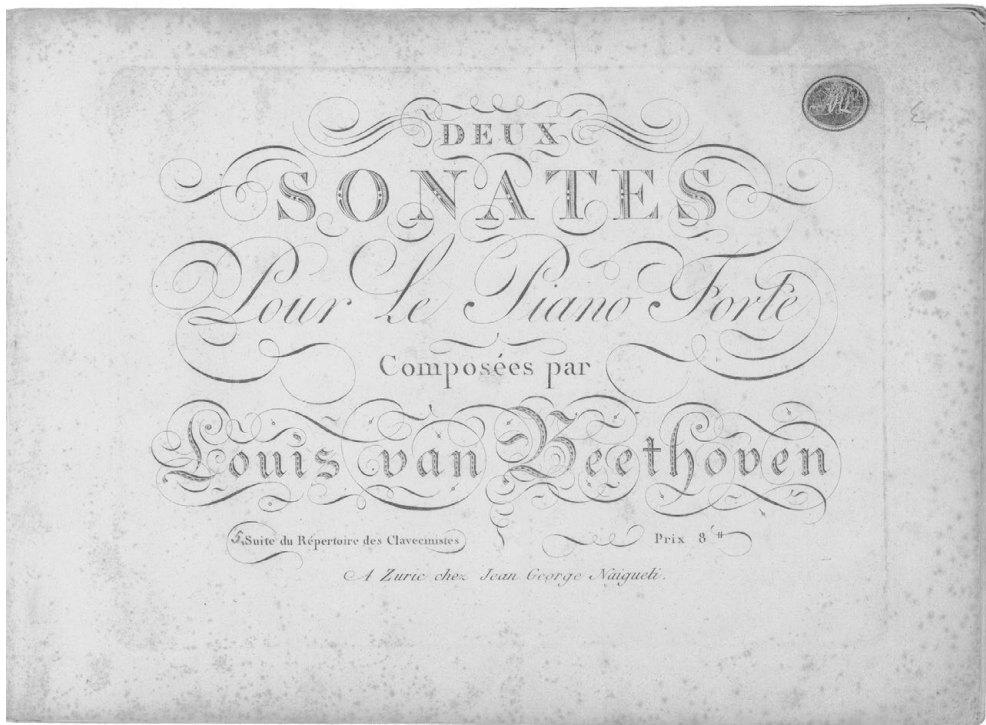 DEUX
SONATES
Pour Le Piano Forte
Composées par
Louis van Beethoven
5. Suite du Répertoire des Clavecinistes
Prix 8
A Zuric chez Jean George Naigueli.